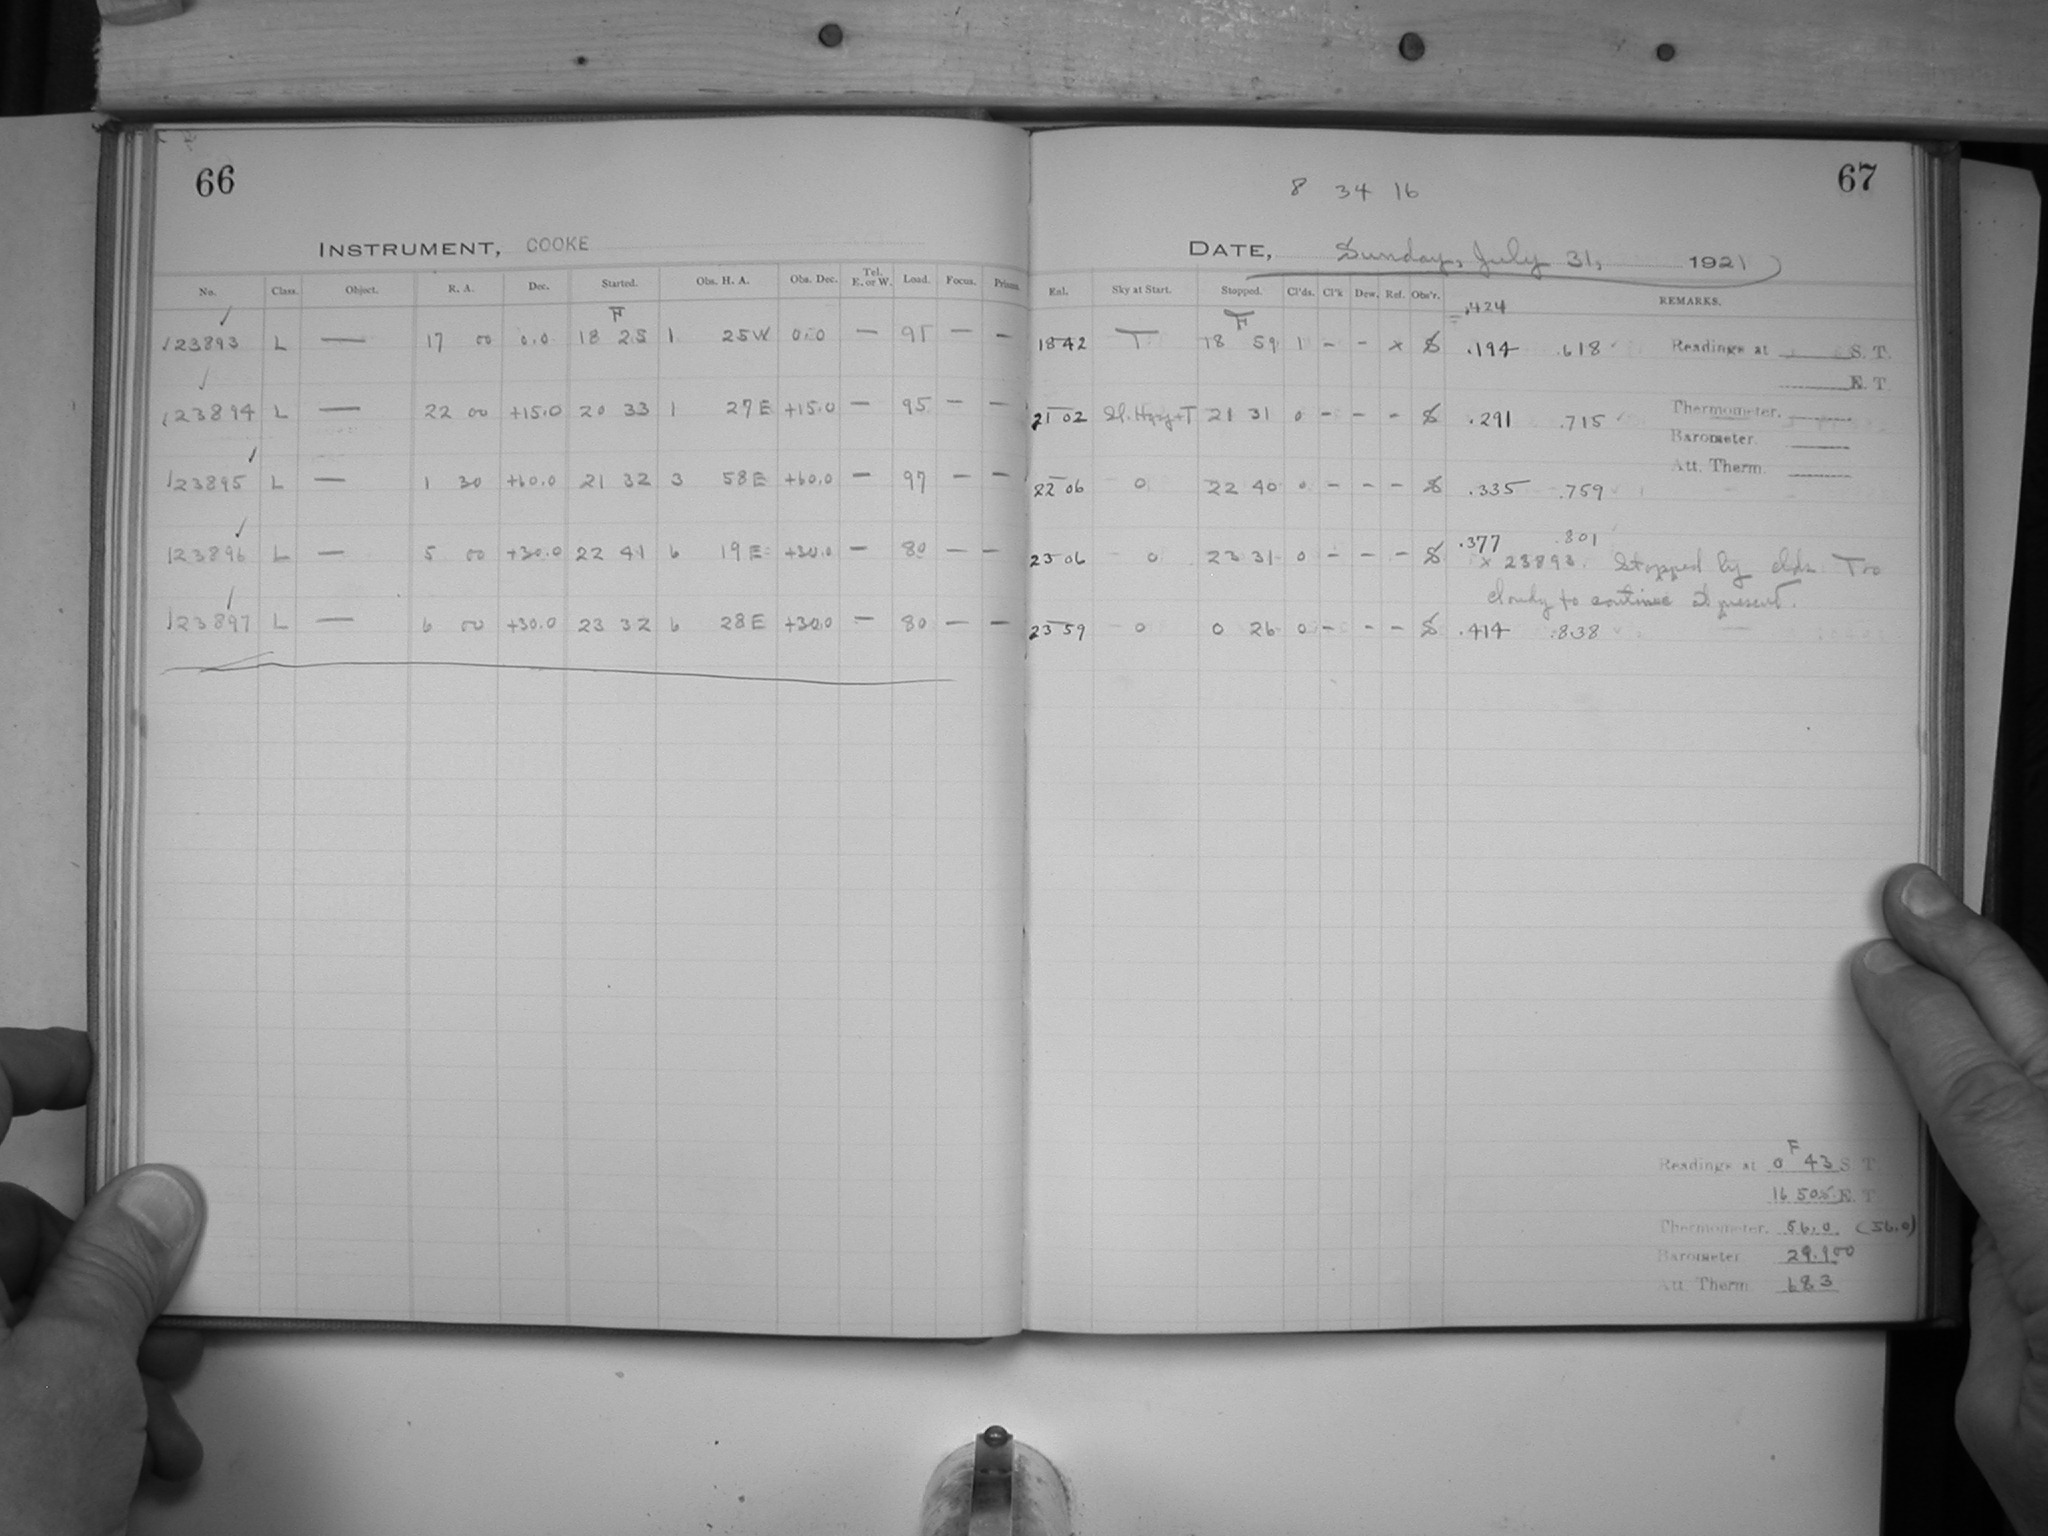 66
INSTRUMENT, COOKE
No. Class. Object. R. A. Dec. Started. Obs. H. A. Obs. Dec. Tel. E. or W. Load. Focus. Prisms.
F
✓
23893 L — 17 00 0.0 18 25 1 25 W 0.0 — 95 — —
✓
23894 L — 22 00 +15.0 20 33 1 27 E +15.0 — 95 — —
✓
23895 L — 1 30 +60.0 21 32 3 58 E +60.0 — 97 — —
✓
23896 L — 5 00 +30.0 22 41 6 19 E +30.0 — 80 — —
✓
23897 L — 6 00 +30.0 23 32 6 28 E +30.0 — 80 — —
67
8 34 16
DATE, Sunday, July 31, 1921
Enl. Sky at Start. Stopped. Cl'ds. Cl'k Dew. Ref. Obs'r. REMARKS.
F .424
18 42 T 18 59 1 - - x S .194 .618 Readings at S. T.
E. T.
21 02 Sl. Hazy + T 21 31 0 - - - S .291 .715 Thermometer.
Barometer.
Att. Therm.
22 06 0 22 40 0 - - - S .335 .759
.377 .801
23 06 0 23 31 0 - - - S x 23893. Stopped by clds. Too
cloudy to continue at present.
23 59 0 0 26 0 - - - S .414 .838
F
Readings at 0 43 S. T.
16 505 E. T.
Thermometer. 56.0 (56.0)
Barometer 29.900
Att. Therm. 68.3